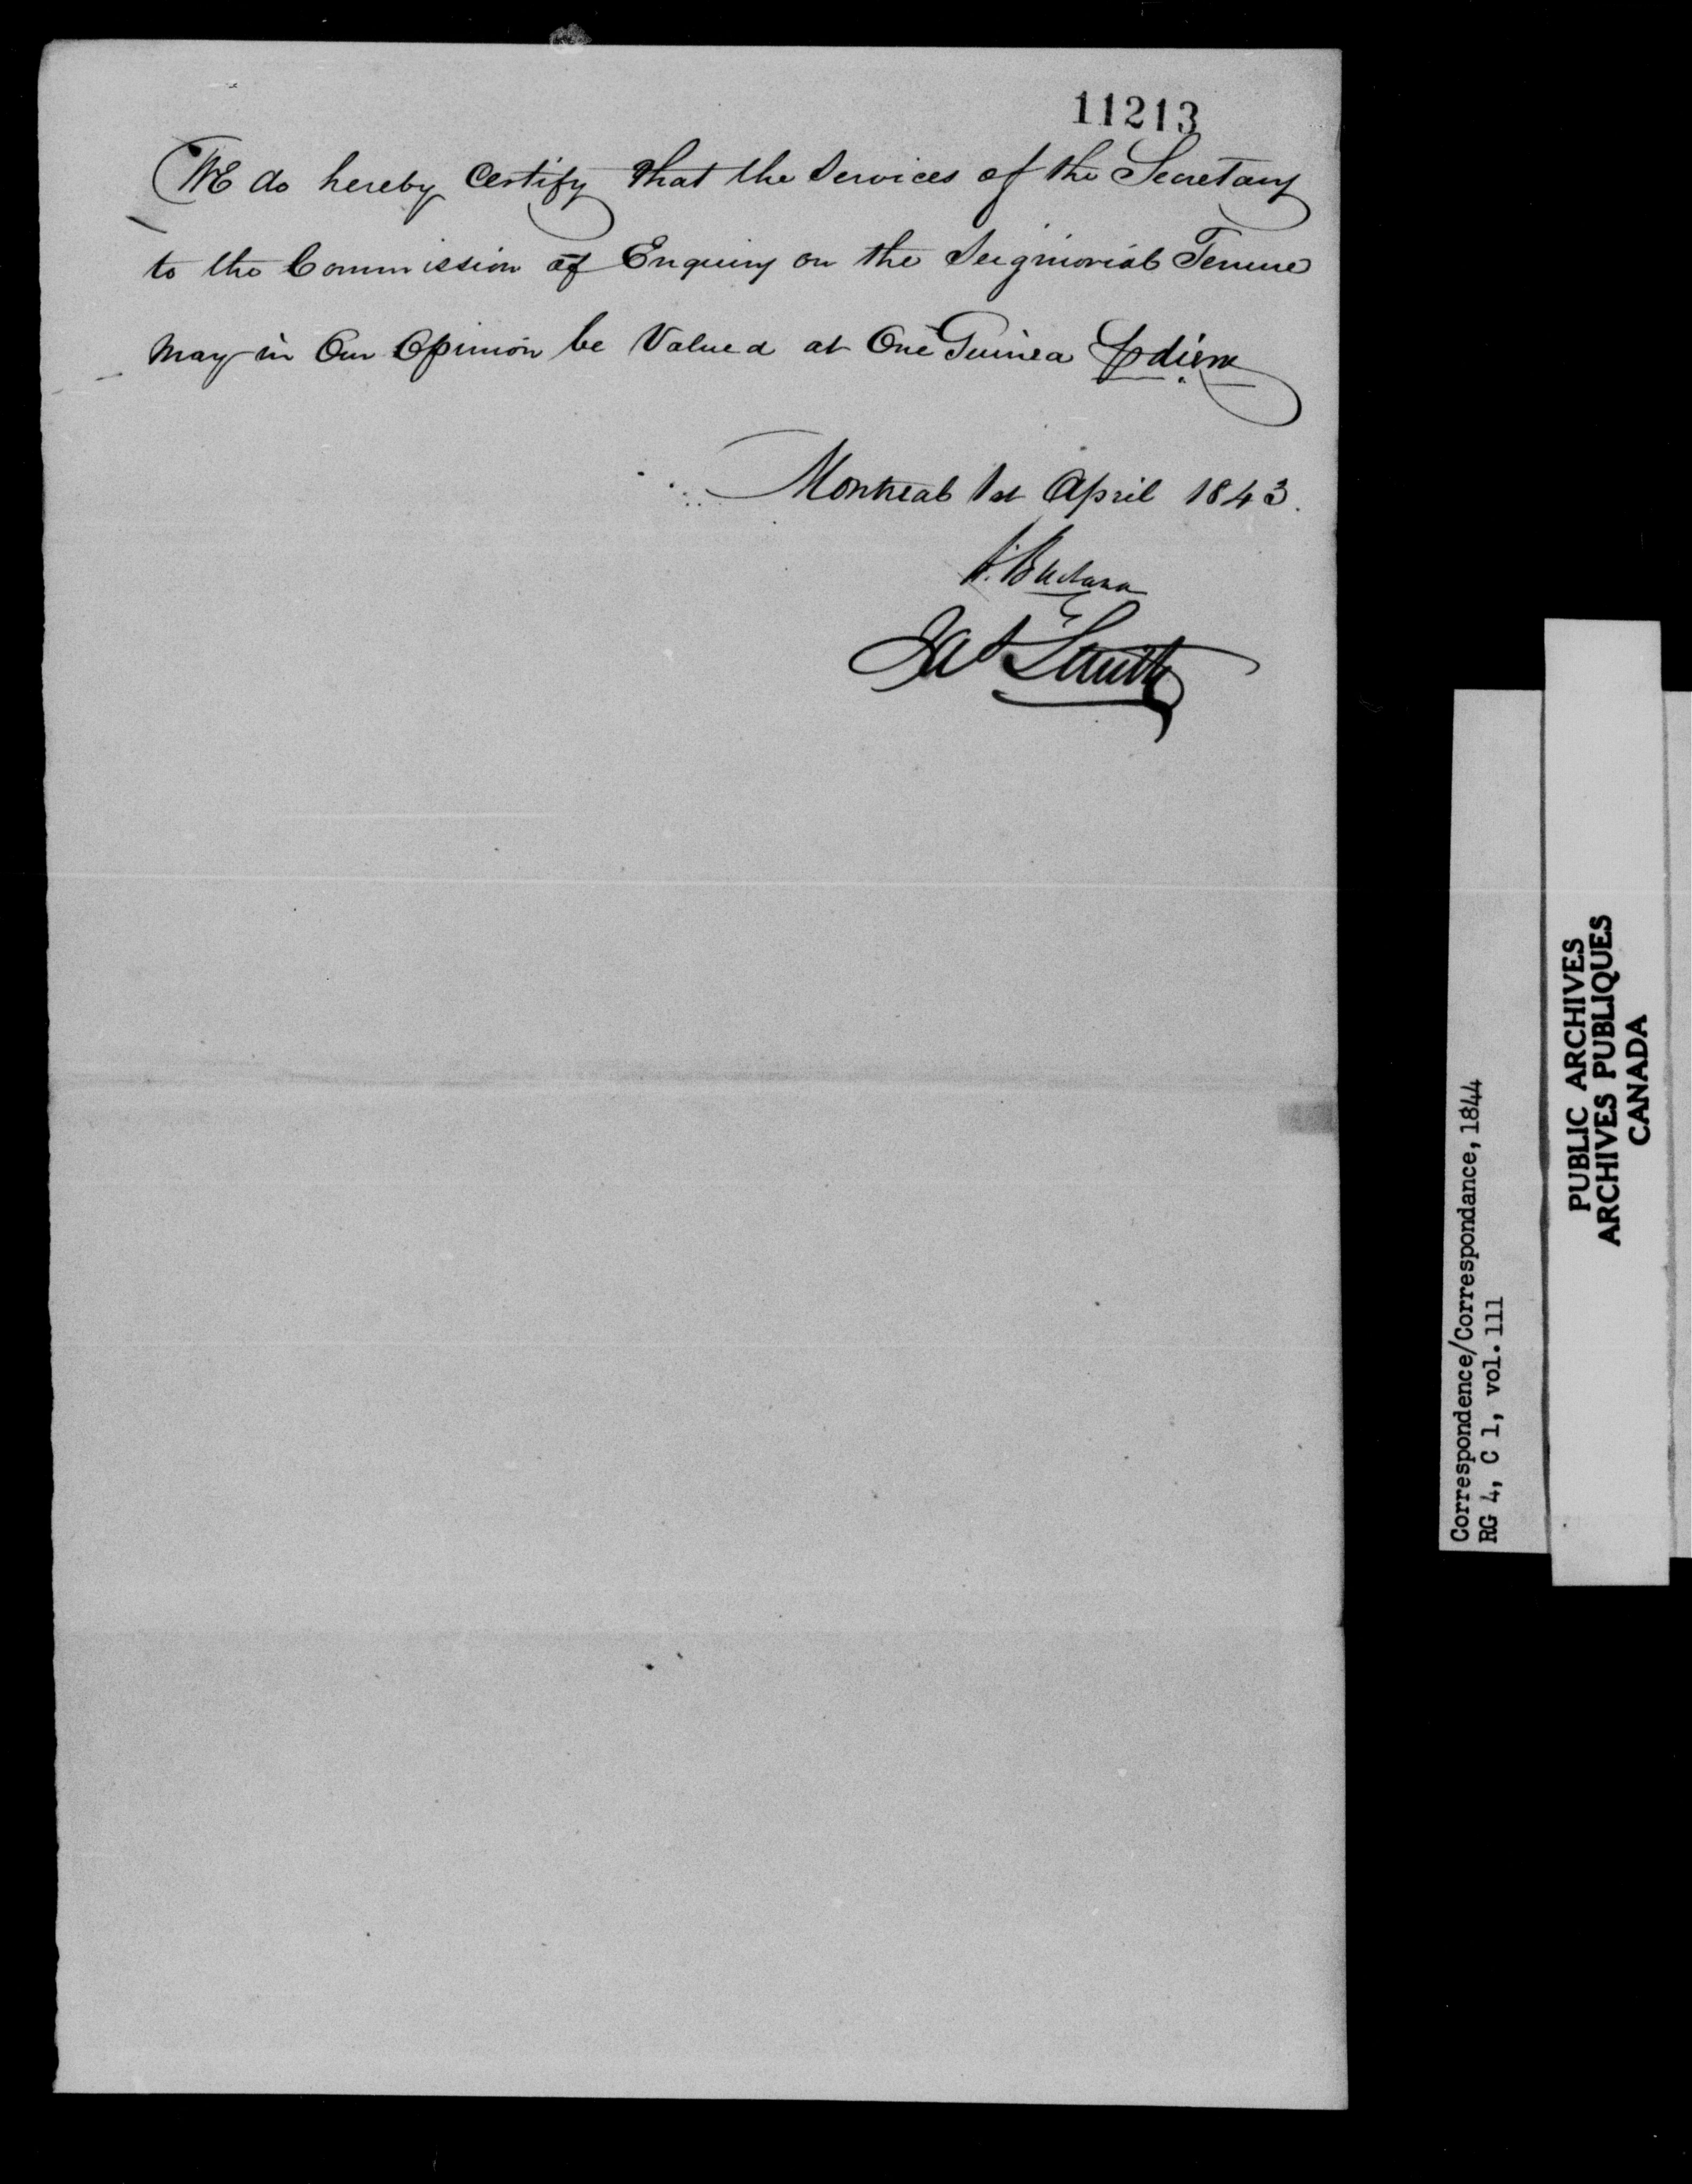 11213
We do hereby Certify that the Services of the Secretary
to the Commission of Enquiry on the Seigniorial Tenure
may in Our Opinion be Valued at One Guinea ⅌ diem
Montreal 1st April 1843.
A. Buchanan
Jas Smith
Correspondence/Correspondance, 1844
RG 4, C 1, vol. 111
PUBLIC ARCHIVES
ARCHIVES PUBLIQUES
CANADA